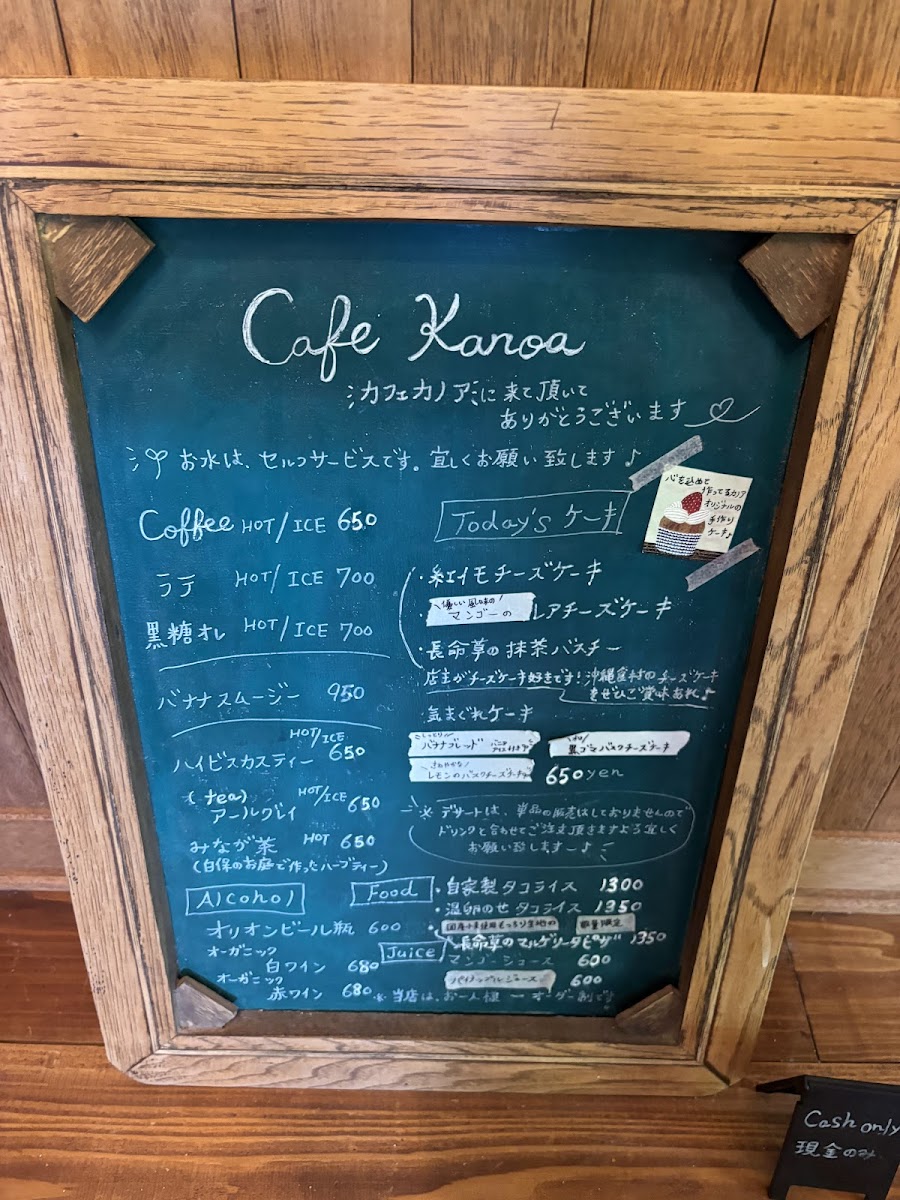 Cafe Kanoa
カフェカノアに来て頂いて
ありがとうございます
お水は、セルフサービスです。宜しくお願い致します♪
Coffee HOT/ICE 650
ラテ HOT/ICE 700
黒糖オレ HOT/ICE 700
バナナスムージー 950
HOT/ICE
ハイビスカスティー 650
(tea)
アールグレイ HOT/ICE 650
みなが茶 HOT 650
(白保のお庭で作ったハーブティー)
Alcohol
オリオンビール瓶 600
オーガニック
白ワイン 680
オーガニック
赤ワイン 680
Today's ケーキ
心を込めて
作ってるカノア
オリジナルの
手作り
ケーキ♪
・紅イモチーズケーキ
\優しい風味の/
マンゴーの レアチーズケーキ
・長命草の抹茶バスチー
店主がチーズケーキ好きです!沖縄食材のチーズケーキ
をぜひご賞味あれ♪
・気まぐれケーキ
しっとり
バナナブレッド バニラアイス付き
黒ゴマバスクチーズケーキ
さわやかな
レモンのバスクチーズケーキ 650yen
※デザートは、単品の販売はしておりませんので
ドリンクと合わせてご注文頂きますよう宜しく
お願い致します〜♪
Food
・自家製タコライス 1300
・温卵のせタコライス 1350
・国産小麦使用もっちり生地の 数量限定
長命草のマルゲリータピザ 1350
Juice
マンゴージュース 600
パイナップルジュース 600
※当店は、お一人様一オーダー制です
Cash only
現金のみ